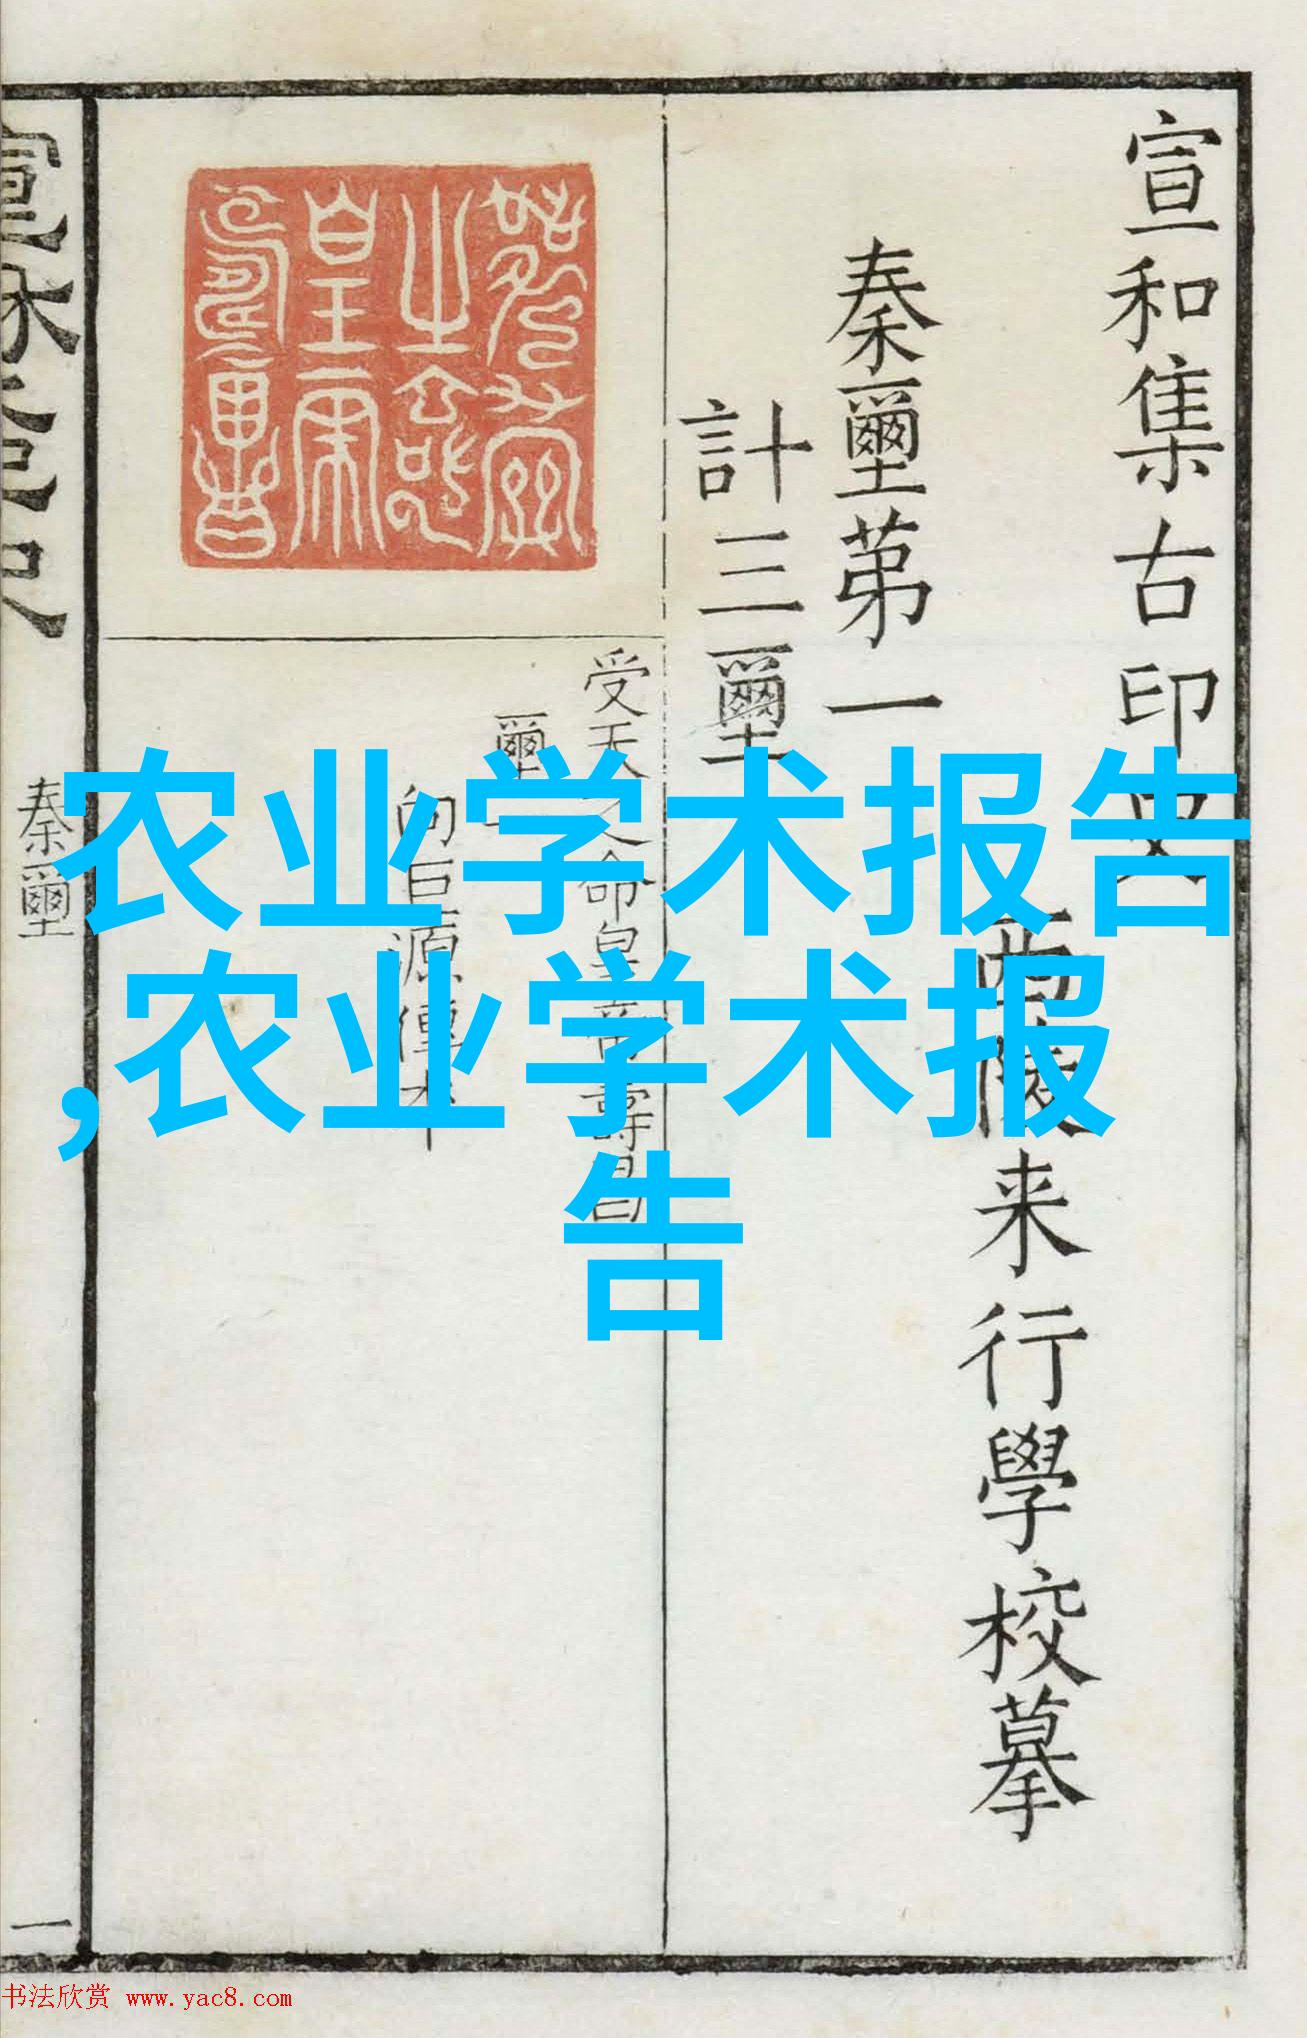 宣和集古印史
西陵来行學校摹
秦璽苐一
計三璽
受天之命皇帝壽昌
璽
向巨源傳本
秦璽
一
农业学术报告
,农业学术报
告
书法欣赏 www.yac8.com